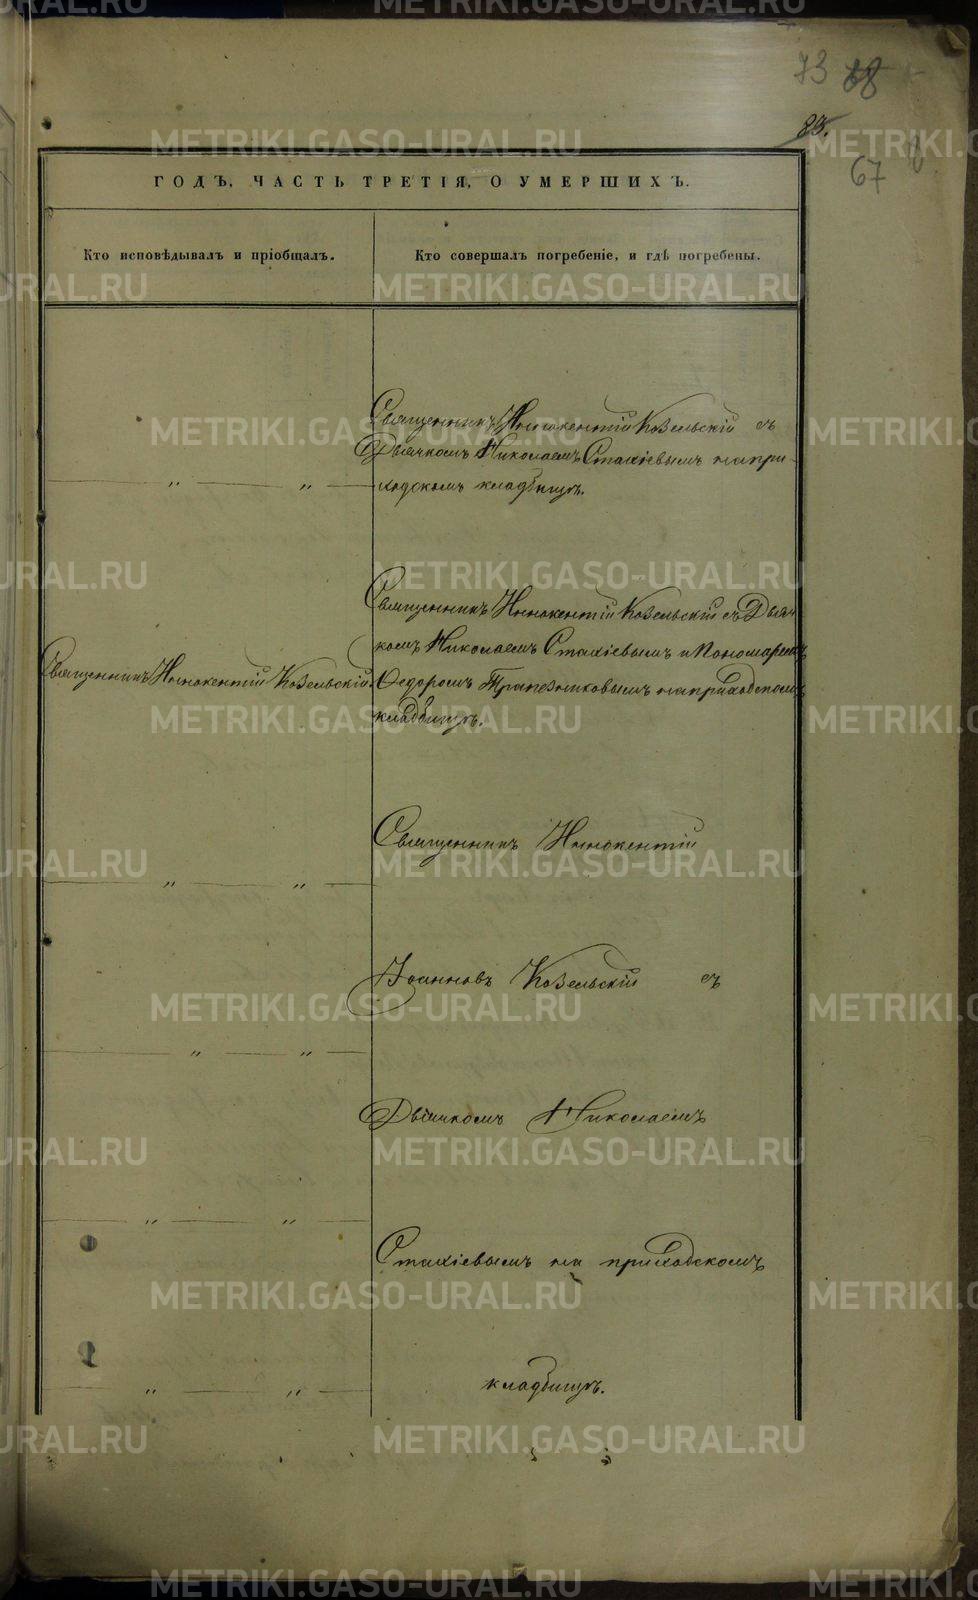 73 68
83.
67
ГОДЪ, ЧАСТЬ ТРЕТІЯ, О УМЕРШИХЪ.
Кто исповѣдывалъ и пріобщалъ.
Кто совершалъ погребеніе, и гдѣ погребены.
Священникъ Иннокентій Козельскій съ
Дьячкомъ Николаемъ Стахіевымъ на при-
ходскомъ кладбищѣ.
" "
Священникъ Иннокентій Козельскій съ Дьяч
комъ Николаемъ Стахіевымъ и Пономаремъ
Священникъ Иннокентій Козельскій.
Ѳедоромъ Трапезниковымъ на приходскомъ
кладбищѣ.
Священникъ Иннокентій
" "
Іоанновъ Козельскій съ
" "
Дьячкомъ Николаемъ
" "
Стахіевымъ на приходскомъ
кладбищѣ.
" "
METRIKI.GASO-URAL.RU